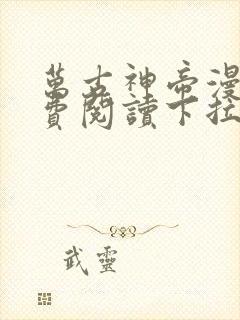 萬古神帝漫
費閱讀下拉
武靈